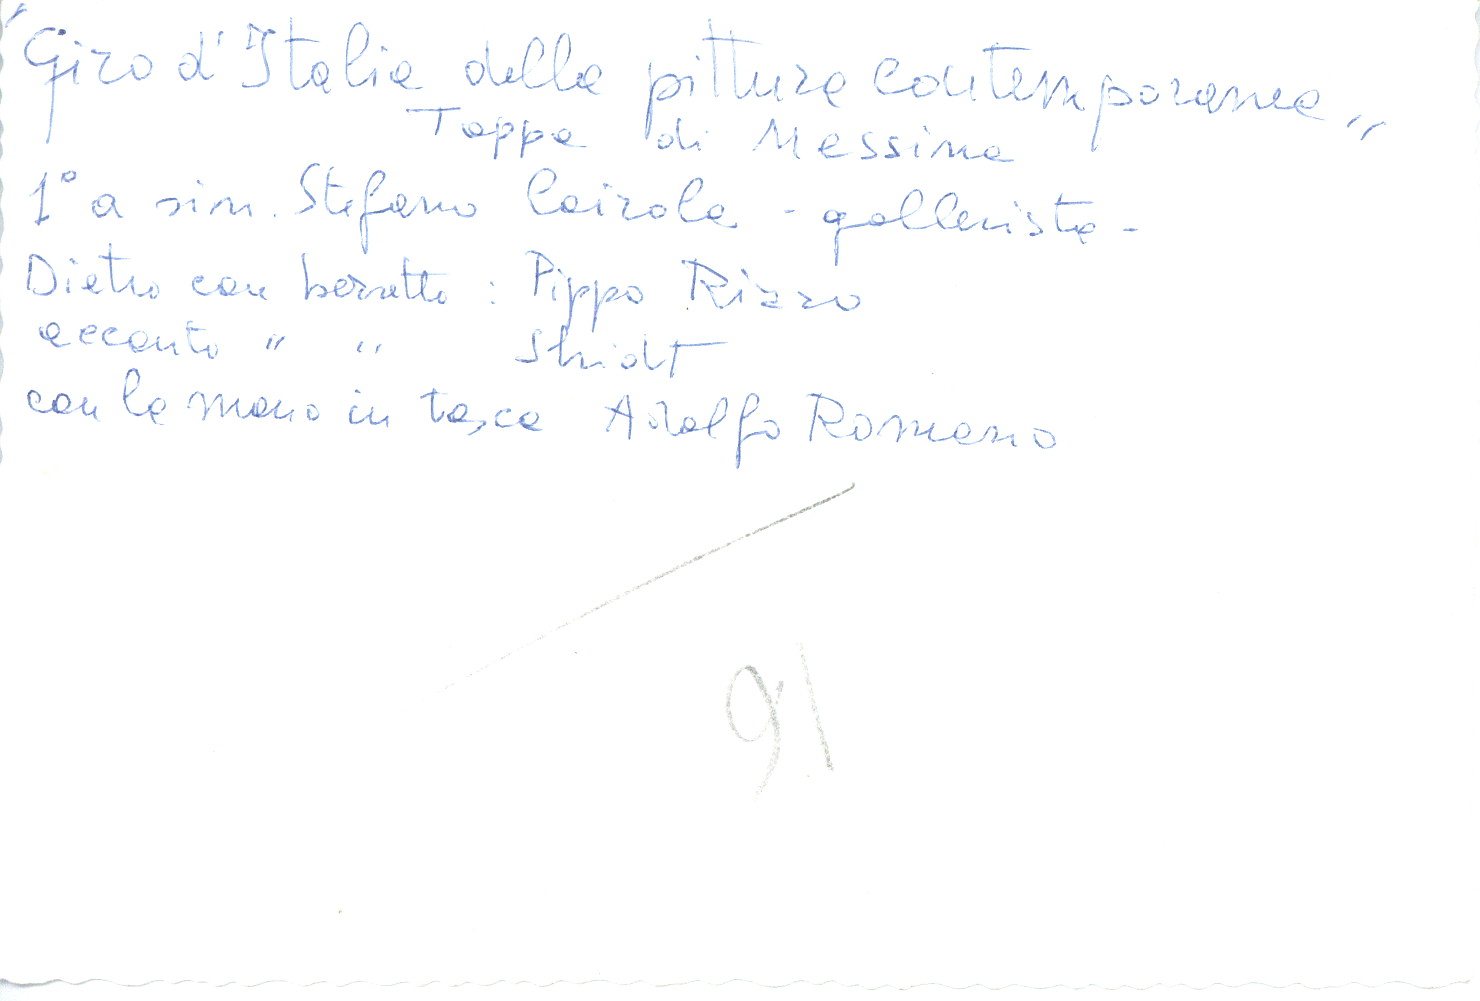 "Giro d'Italia della pittura contemporanea"
Tappa di Messina
1° a sin. Stefano Cairola - gallerista -
Dietro con berretto: Pippo Rizzo
accanto " "
con la mano in tasca Adolfo Romano
91